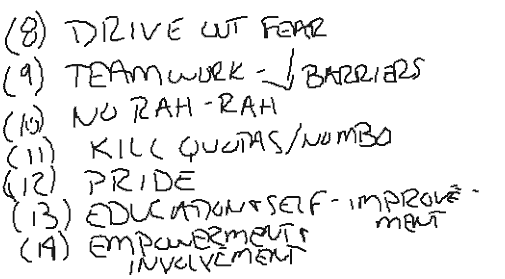 (8) DRIVE OUT FEAR
(9) TEAMWORK - ↓ BARRIERS
(10) NO RAH-RAH
(11) KILL QUOTAS/NUMBO
(12) PRIDE
(13) EDUCATION & SELF-IMPROVE-
MENT
(14) EMPOWERMENT &
INVOLVEMENT